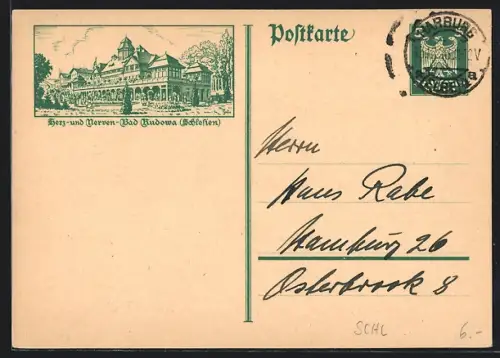 Postkarte
HARBURG
Herz- und Nerven-Bad Kudowa (Schlesien)
Herrn
Hans Rabe
Hamburg 26
Osterbrook 8
SCHL 6.-